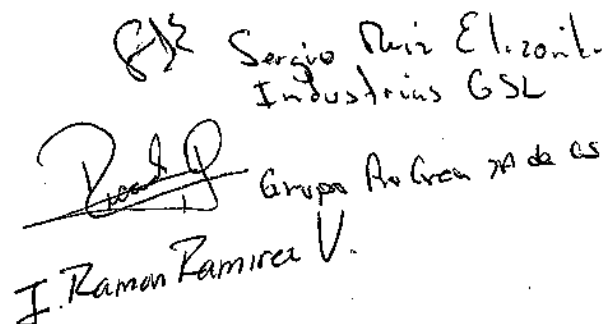 Sergio Ruiz Elizon
Industrias GSL
Grupo ProGreen SA de CS
I. Ramon Ramirez V.